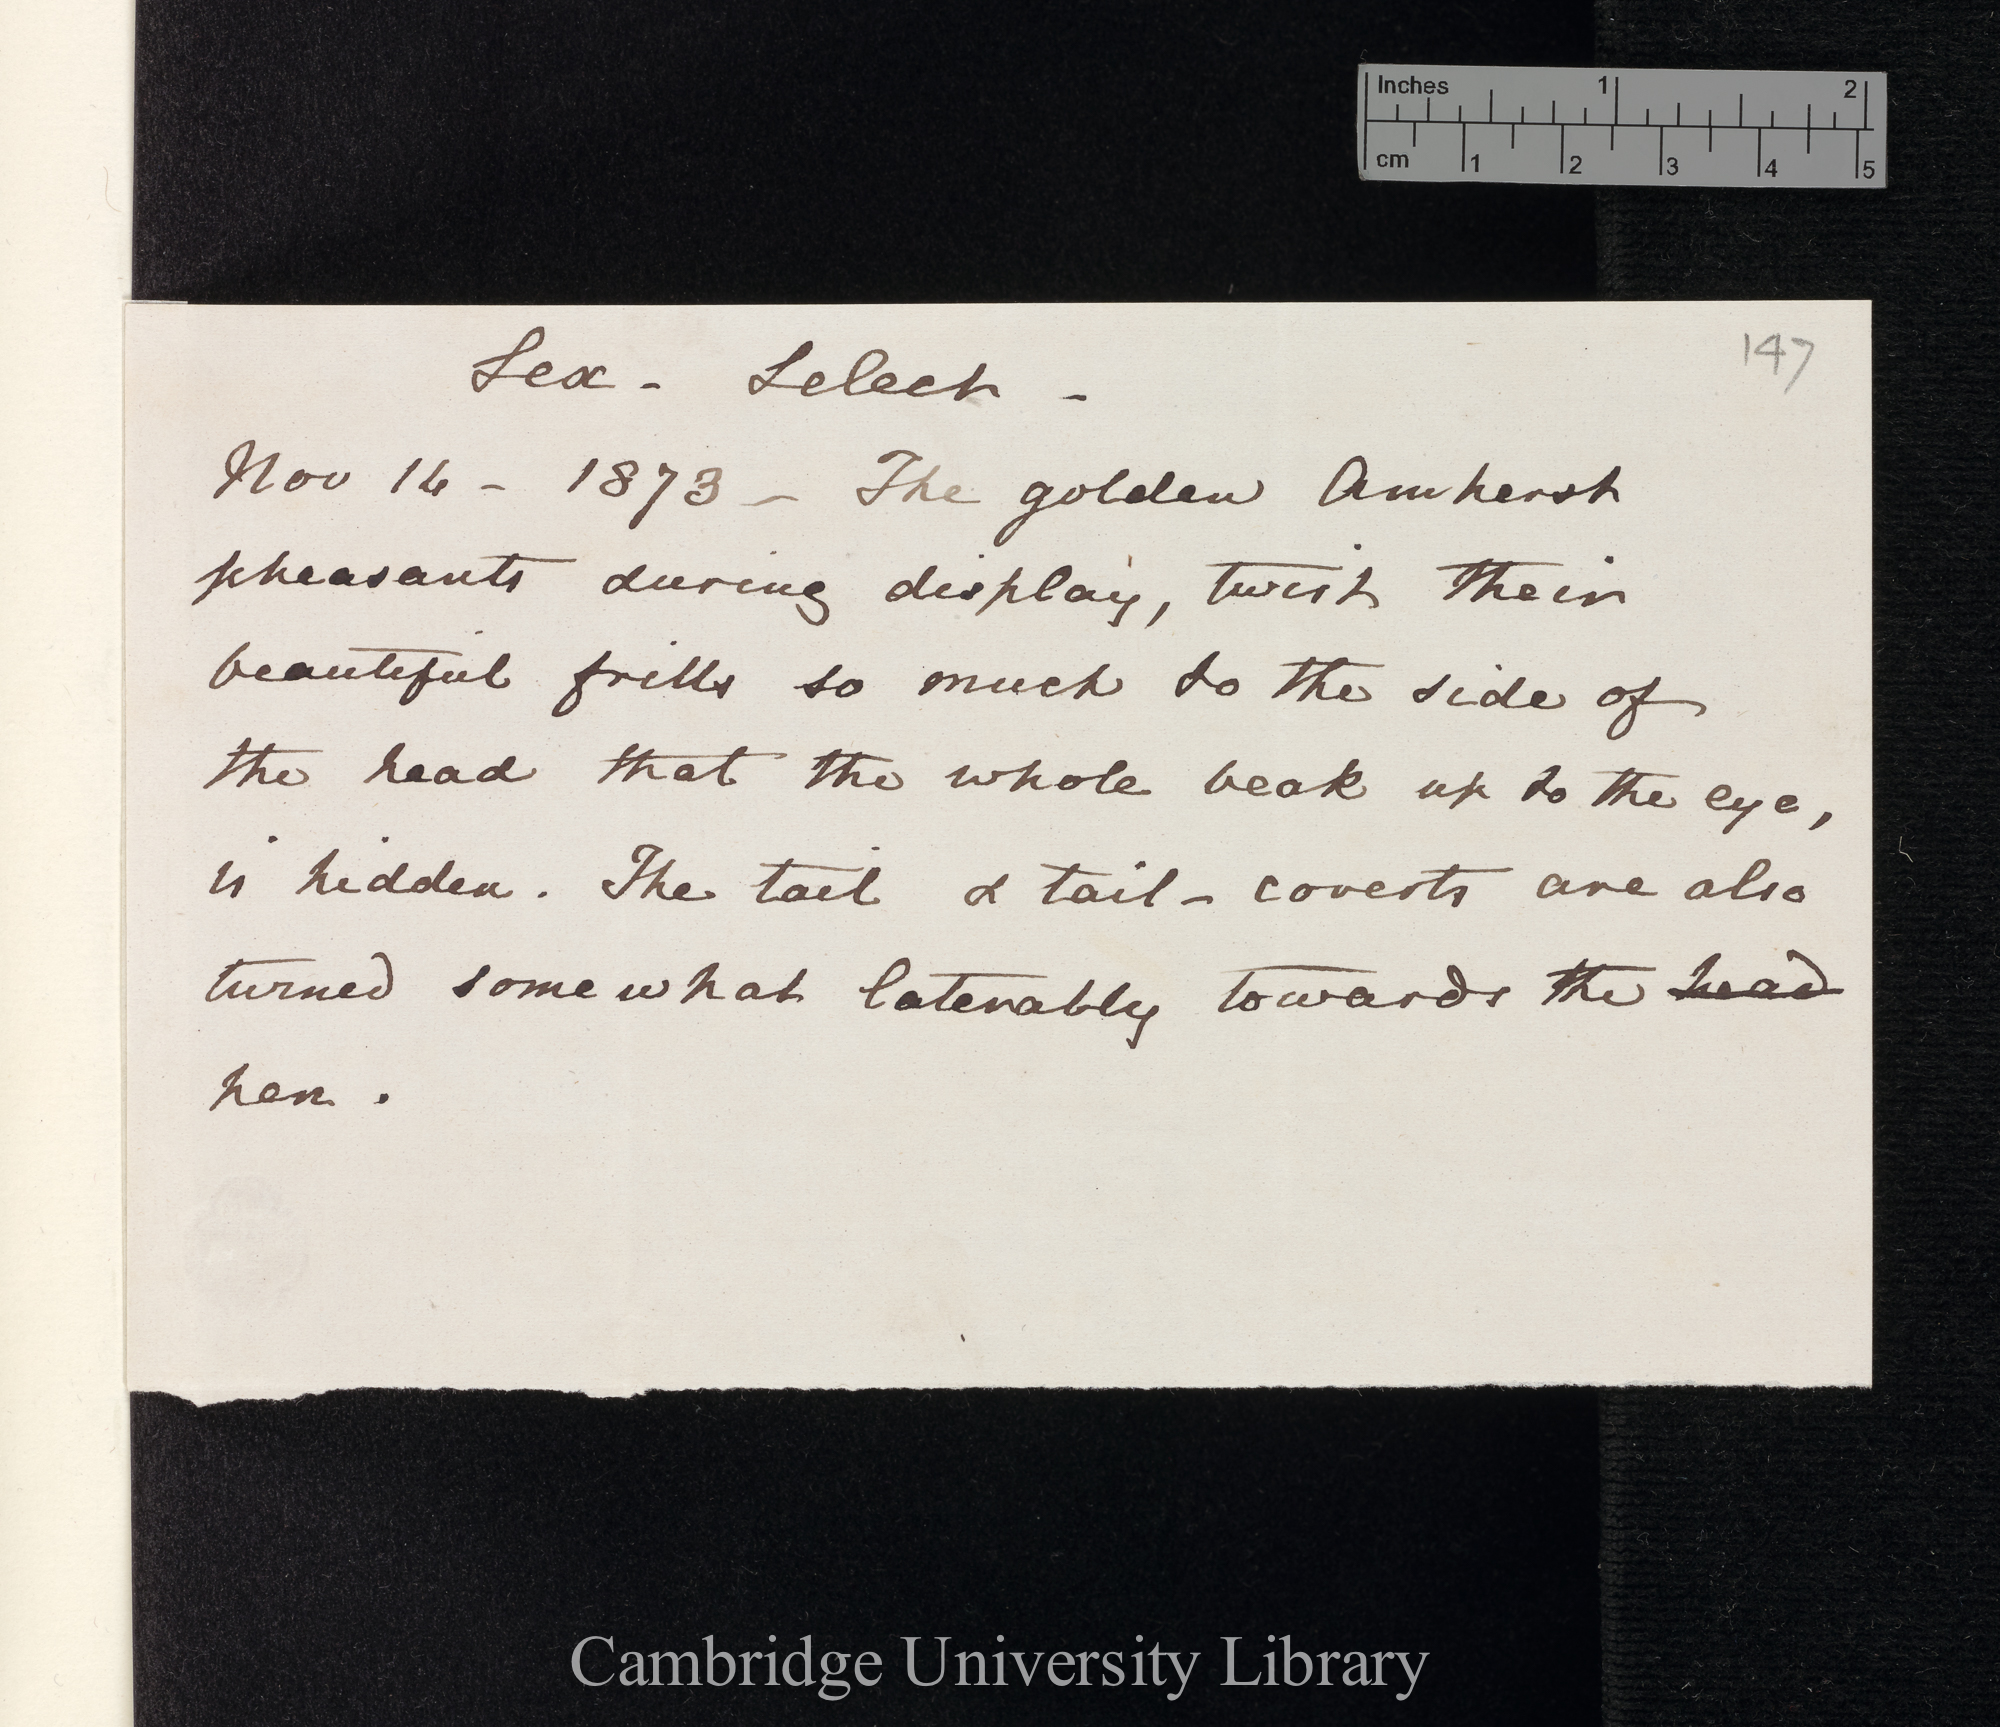 Inches 1 2
cm 1 2 3 4 5
147
Sex - Select -
Nov 14 - 1873 - The golden Amherst
pheasants during display, twist their
beautiful frills so much to the side of
the head that the whole beak up to the eye,
is hidden. The tail & tail-coverts are also
turned somewhat laterally towards the head
hen.
Cambridge University Library